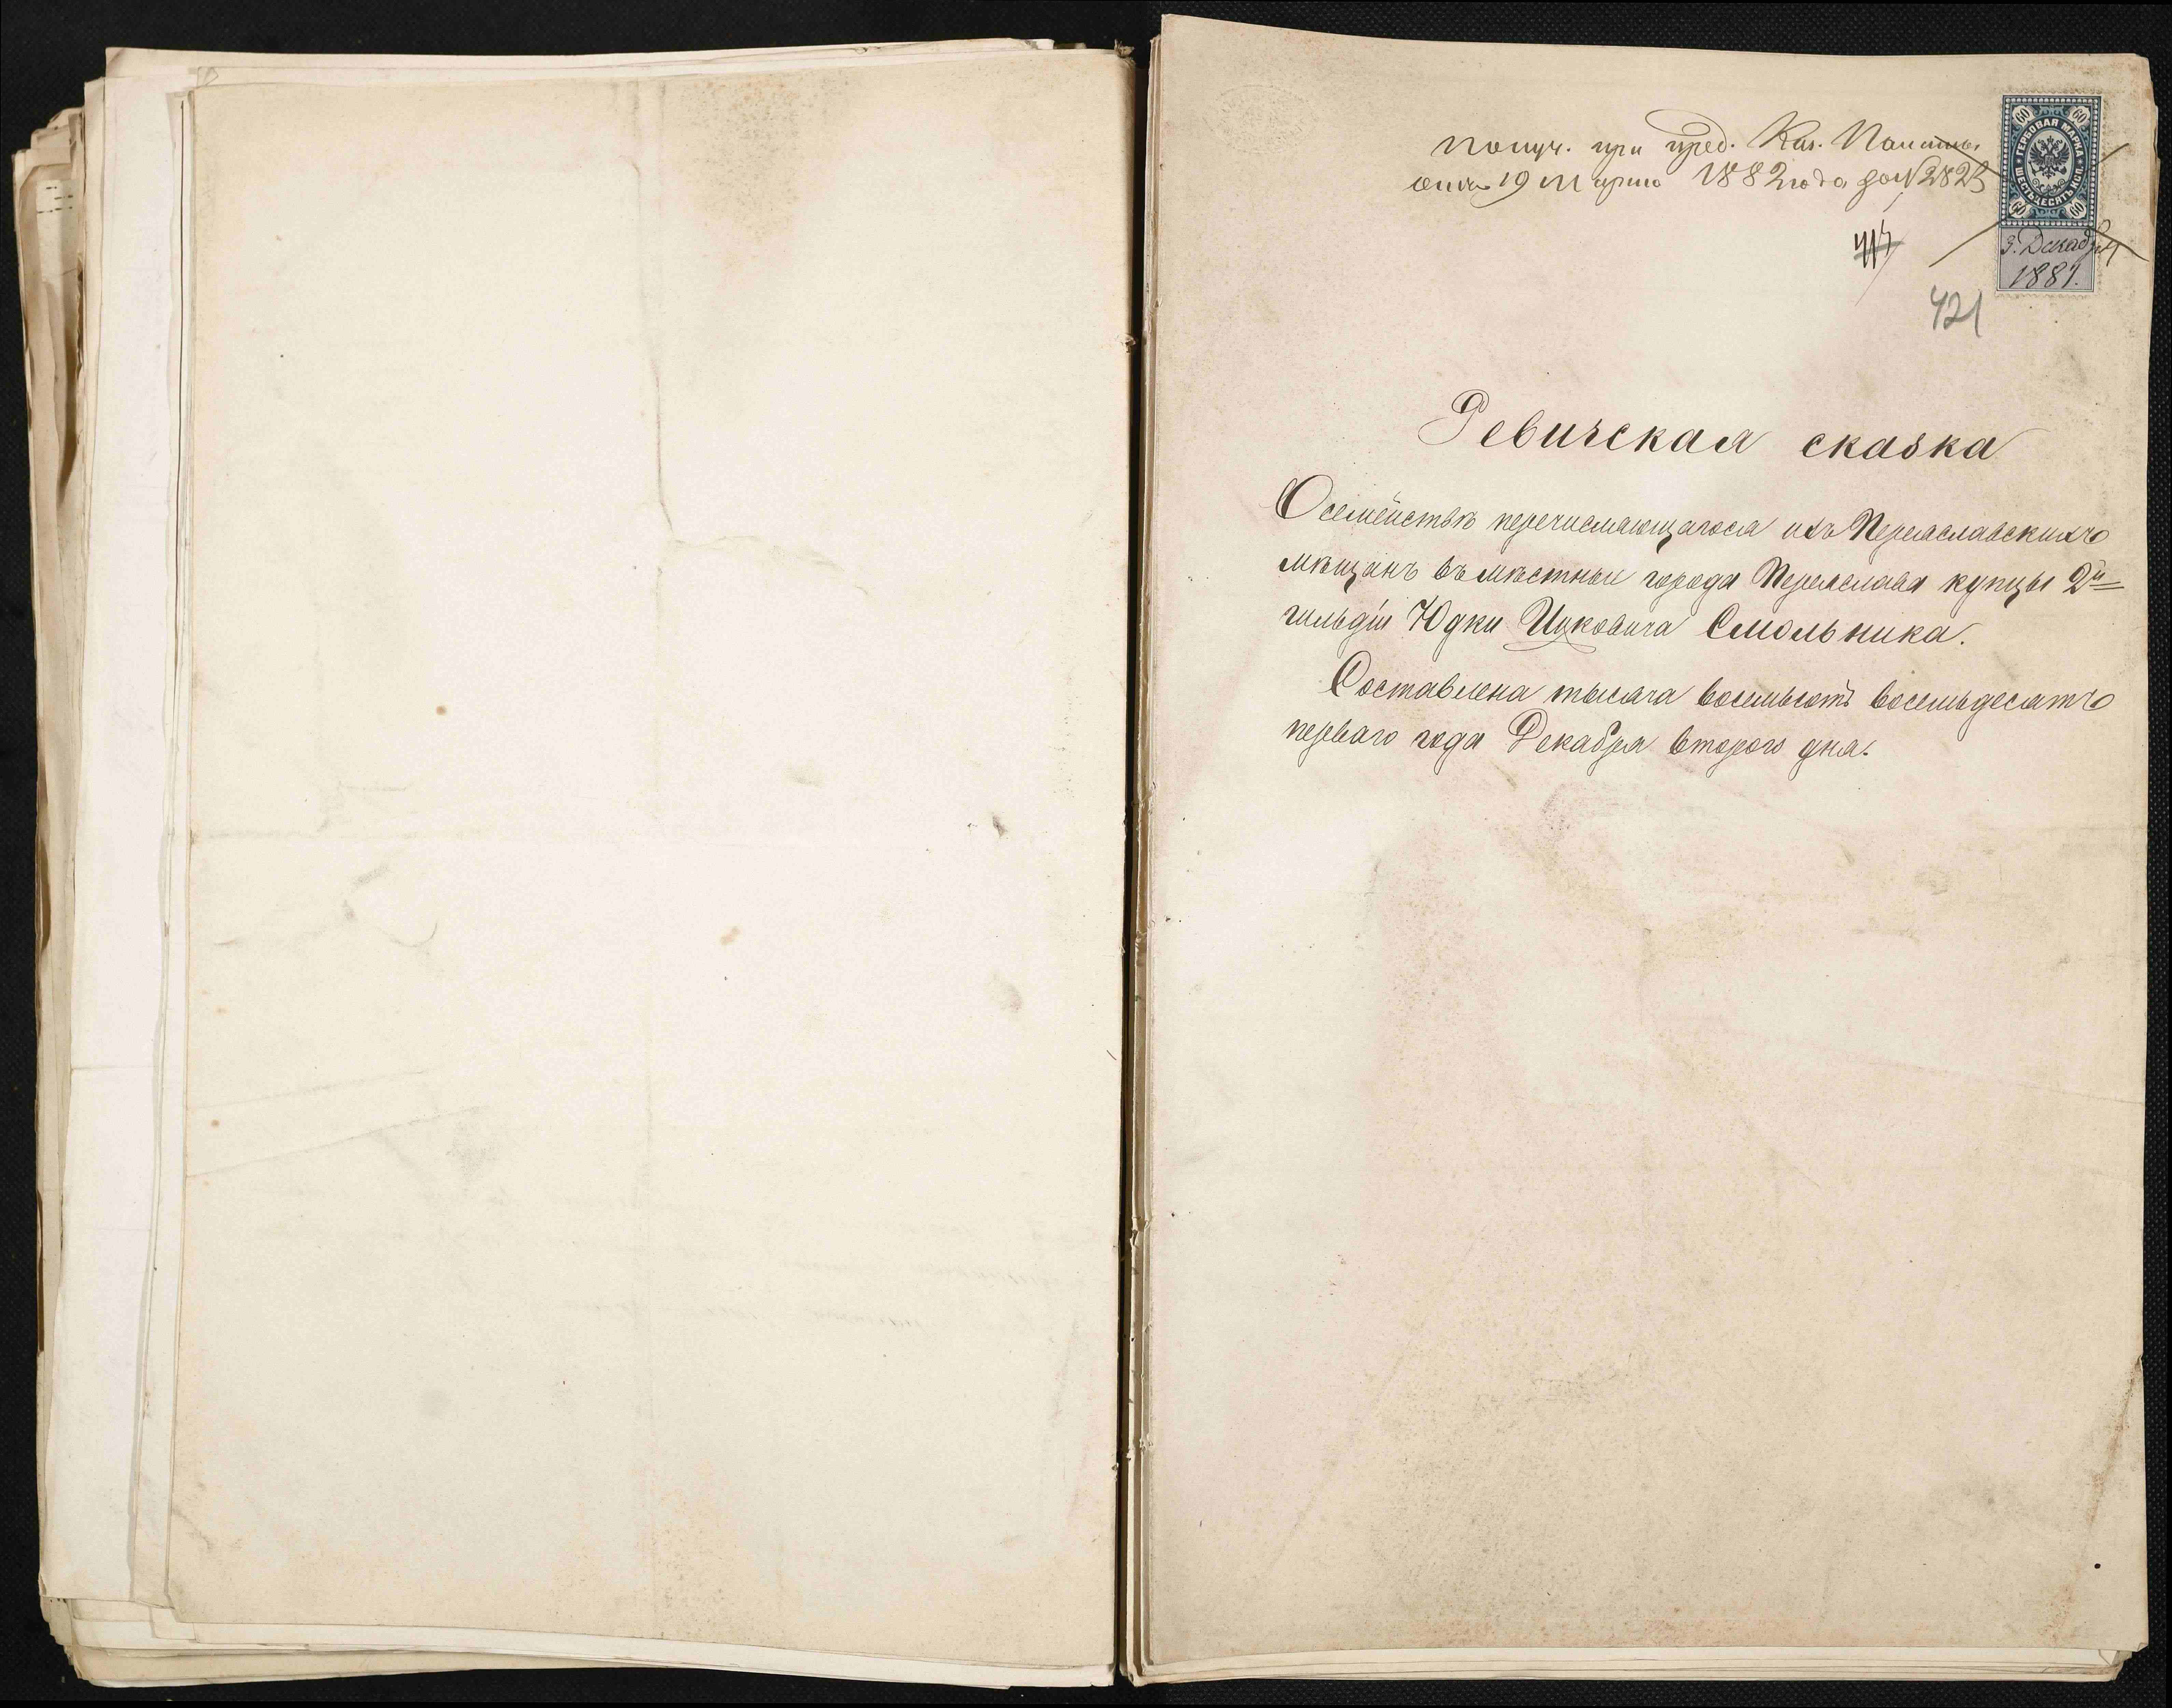 получ. при пред. Каз. Палаты
отъ 19 Марта 1882 года за № 2823
ГЕРБОВАЯ МАРКА
ШЕСТЬДЕСЯТЪ КОП.
60 60
60 60
3. Декабря
1881.
421
Ревизская сказка
О семействѣ перечисляющагося изъ Переяславскихъ
мѣщанъ въ мѣстные города Переяслава купцы 2й
гильдіи Юдки Ицковича Смольника.
Составлена тысяча восемьсотъ восемьдесятъ
перваго года Декабря второго дня.